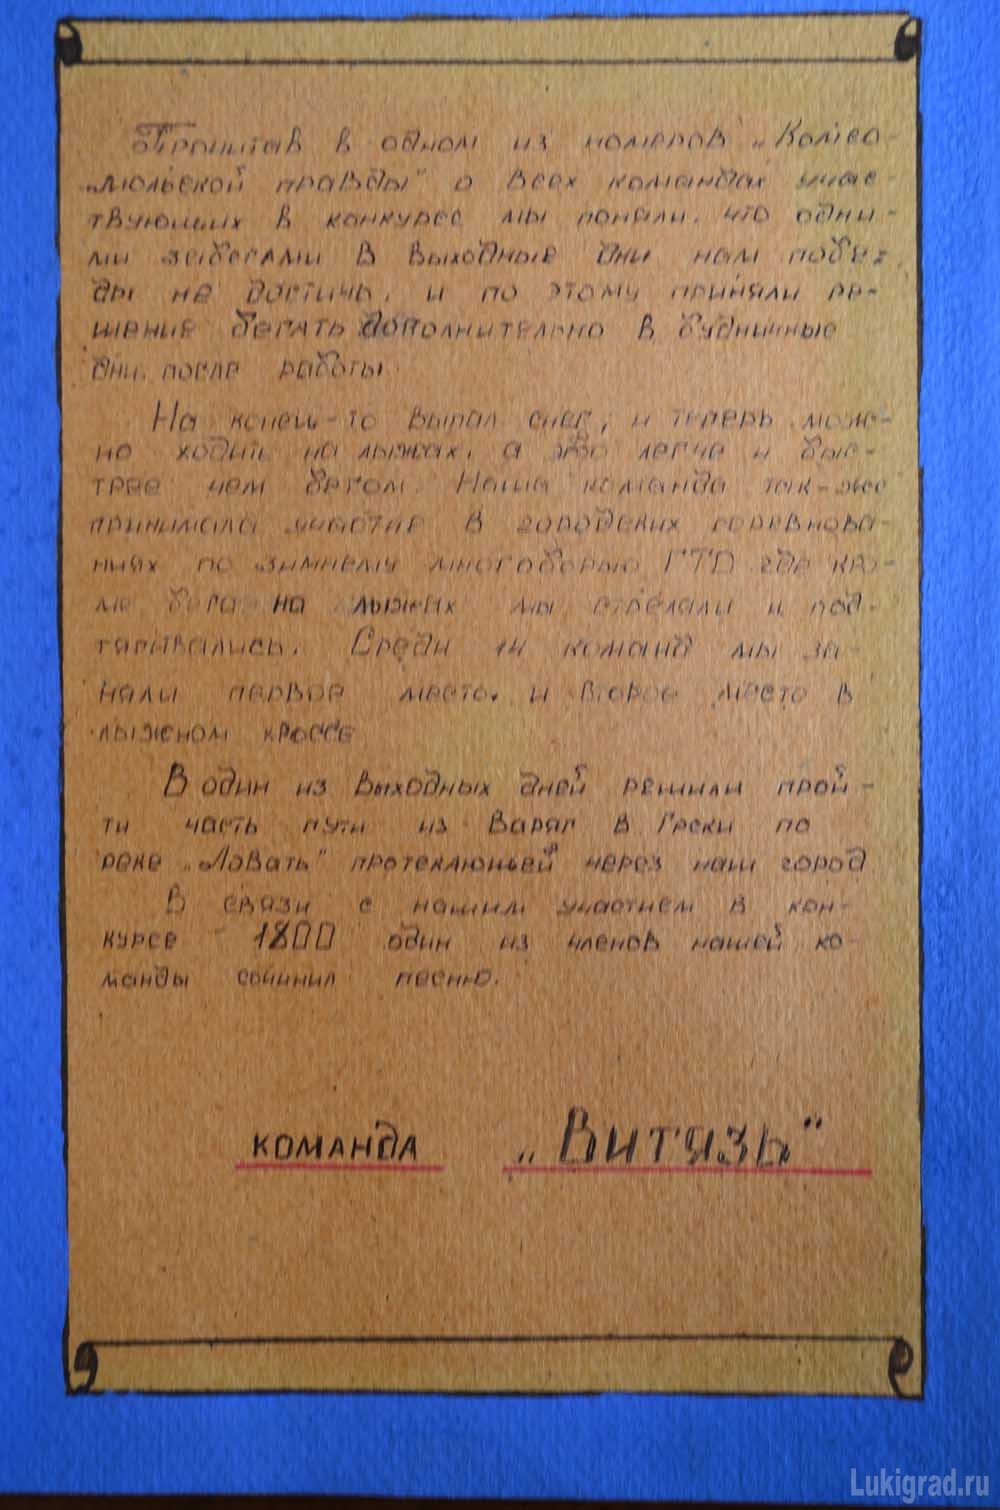 Прочитав в одном из номеров „Комсо-
„мольской правды" о всех командах учас-
твующих в конкурсе мы поняли, что одни-
ми забегами в выходные дни нам побе-
ды не достичь, и по этому приняли ре-
шение бегать дополнительно в будничные
дни. после работы
На конец-то выпал снег, и теперь мож-
но ходить на лыжах, а это легче и быс-
трее чем бегом. Наша команда так-же
принимала участие в городских соревнова-
ниях по зимнему многоборью ГТО где кро-
ме бега на лыжах мы стреляли и под-
тягивались. Среди 14 команд мы за-
няли первое место. и второе место в
лыжном кроссе
В один из выходных дней решили прой-
ти часть пути из Варяг в Греки по
реке „Ловать" протекающей через наш город
В связи с нашим участием в кон-
курсе 1800 один из членов нашей ко-
манды сочинил песню.
команда „Витязь"
Lukigrad.ru